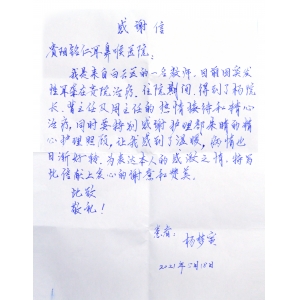 感谢信
贵阳铭仁耳鼻喉医院：
我是来自白云区的一名教师，目前因突发
性耳聋在贵院治疗。住院期间，得到了杨院
长、曾主任及周主任的热情接待和精心
治疗，同时要特别感谢护理部吴晴的精
心护理照顾，让我感到了温暖，病情也
日渐好转，为表达本人的感激之情，特写
此信献上衷心的谢意和赞美。
此致
敬礼！
患者：
杨梦寅
2021年 月18日